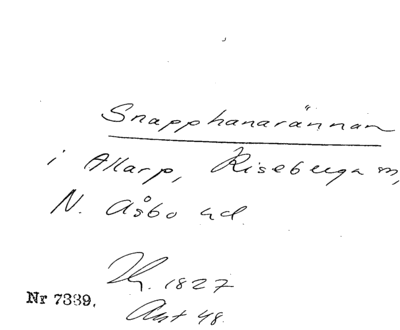 Snapphanarännan
i Allarp, Riseberga sn,
N. Åsbo hd.
1827
Nr 7339.
Ant 48.